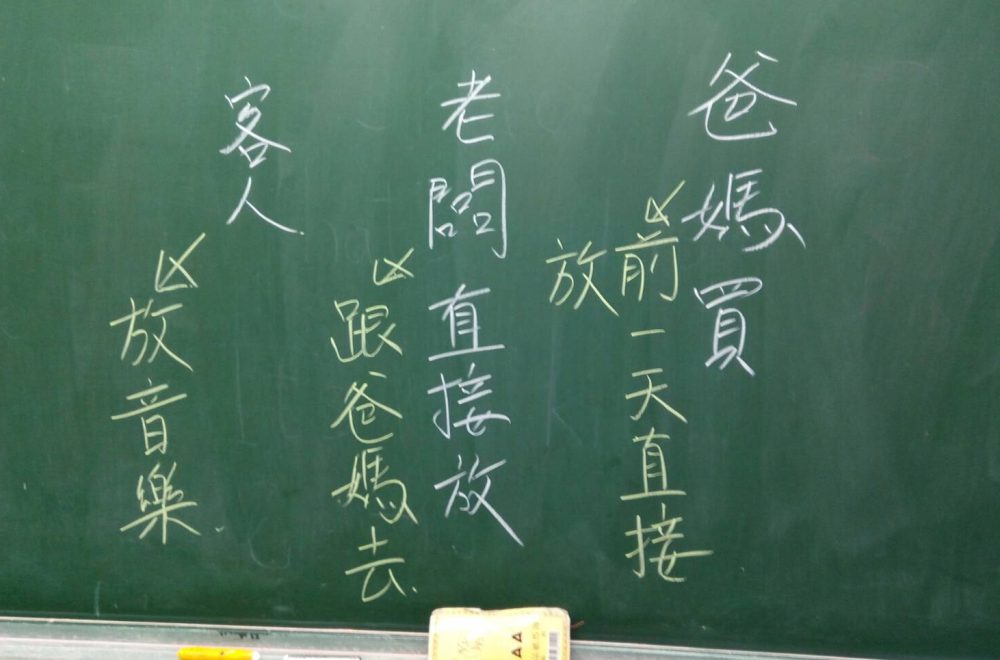 爸媽買
前一天直接
放
老闆直接放
跟爸媽去
客人
放音樂